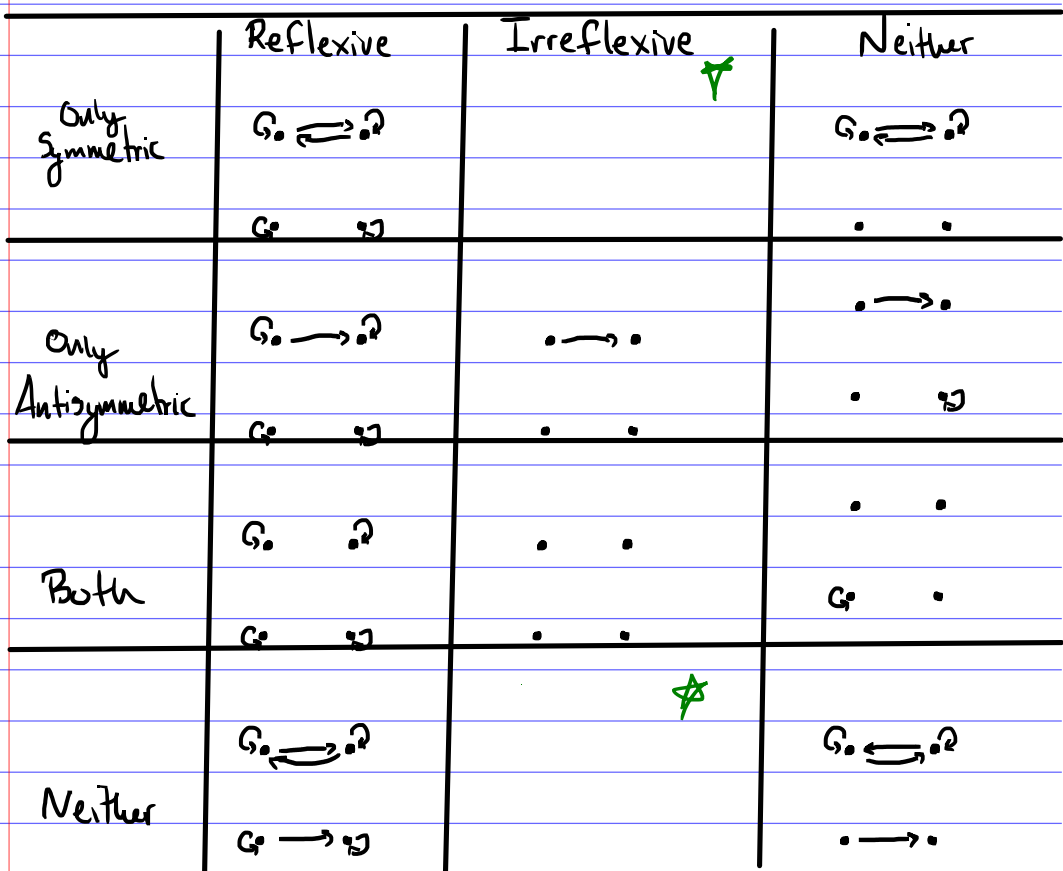 Reflexive Irreflexive Neither
Only
Symmetric
Only
Antisymmetric
Both
Neither